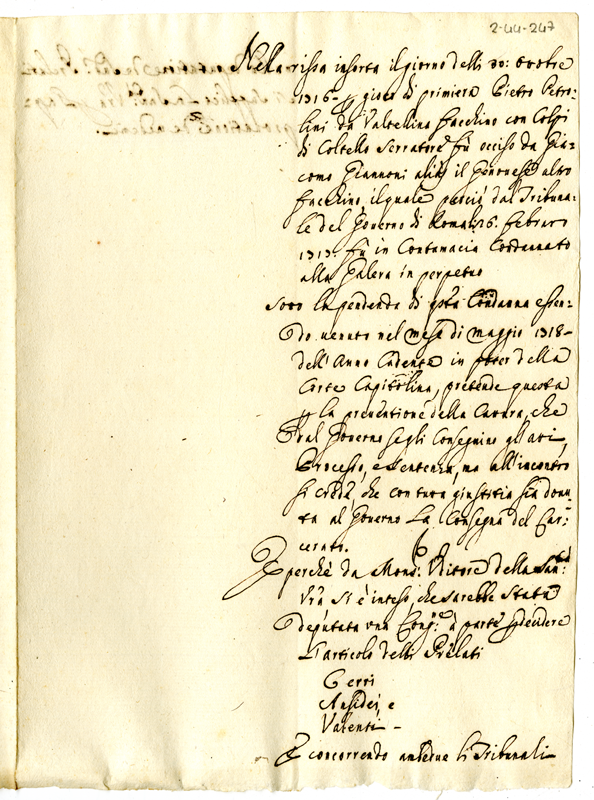 2-44-247
Nella rissa insorta il giorno delli 30: Ottobre
1716 gioco di primiera Pietro Petro-
lini da Valtellina facchino con Colpi
di Coltello Serratore fù occiso da Gia-
como Giannoni alias il Genovese altro
facchino, il quale perciò dal Tribuna-
le del Governo di Roma li 26. febraro
1717. fù in Contumacia Condannato
alla Galera in perpetuo
Sotto la pendenza di qsta Condanna essen-
do venuto nel mese di Maggio 1718-
dell' Anno Cadente in poter della
Corte Capitolina, pretende questa
la preventione della Cattura, che
dal Governo se gli Conseguino gl'atti,
Processo, e Sentenza, ma all'incontro
si crede, che con tutta giustitia sia dovu
ta al Governo La Consegna del Car-
cerato.
E perche da Mons: Uditore della San:
Vrã si è inteso, che sarebbe stata
deputata una Cong:ne à parte decidere
L'articolo delli Prelati
Cerri
Ansidei, e
Valenti -
E concorrendo ambedue li Tribunali